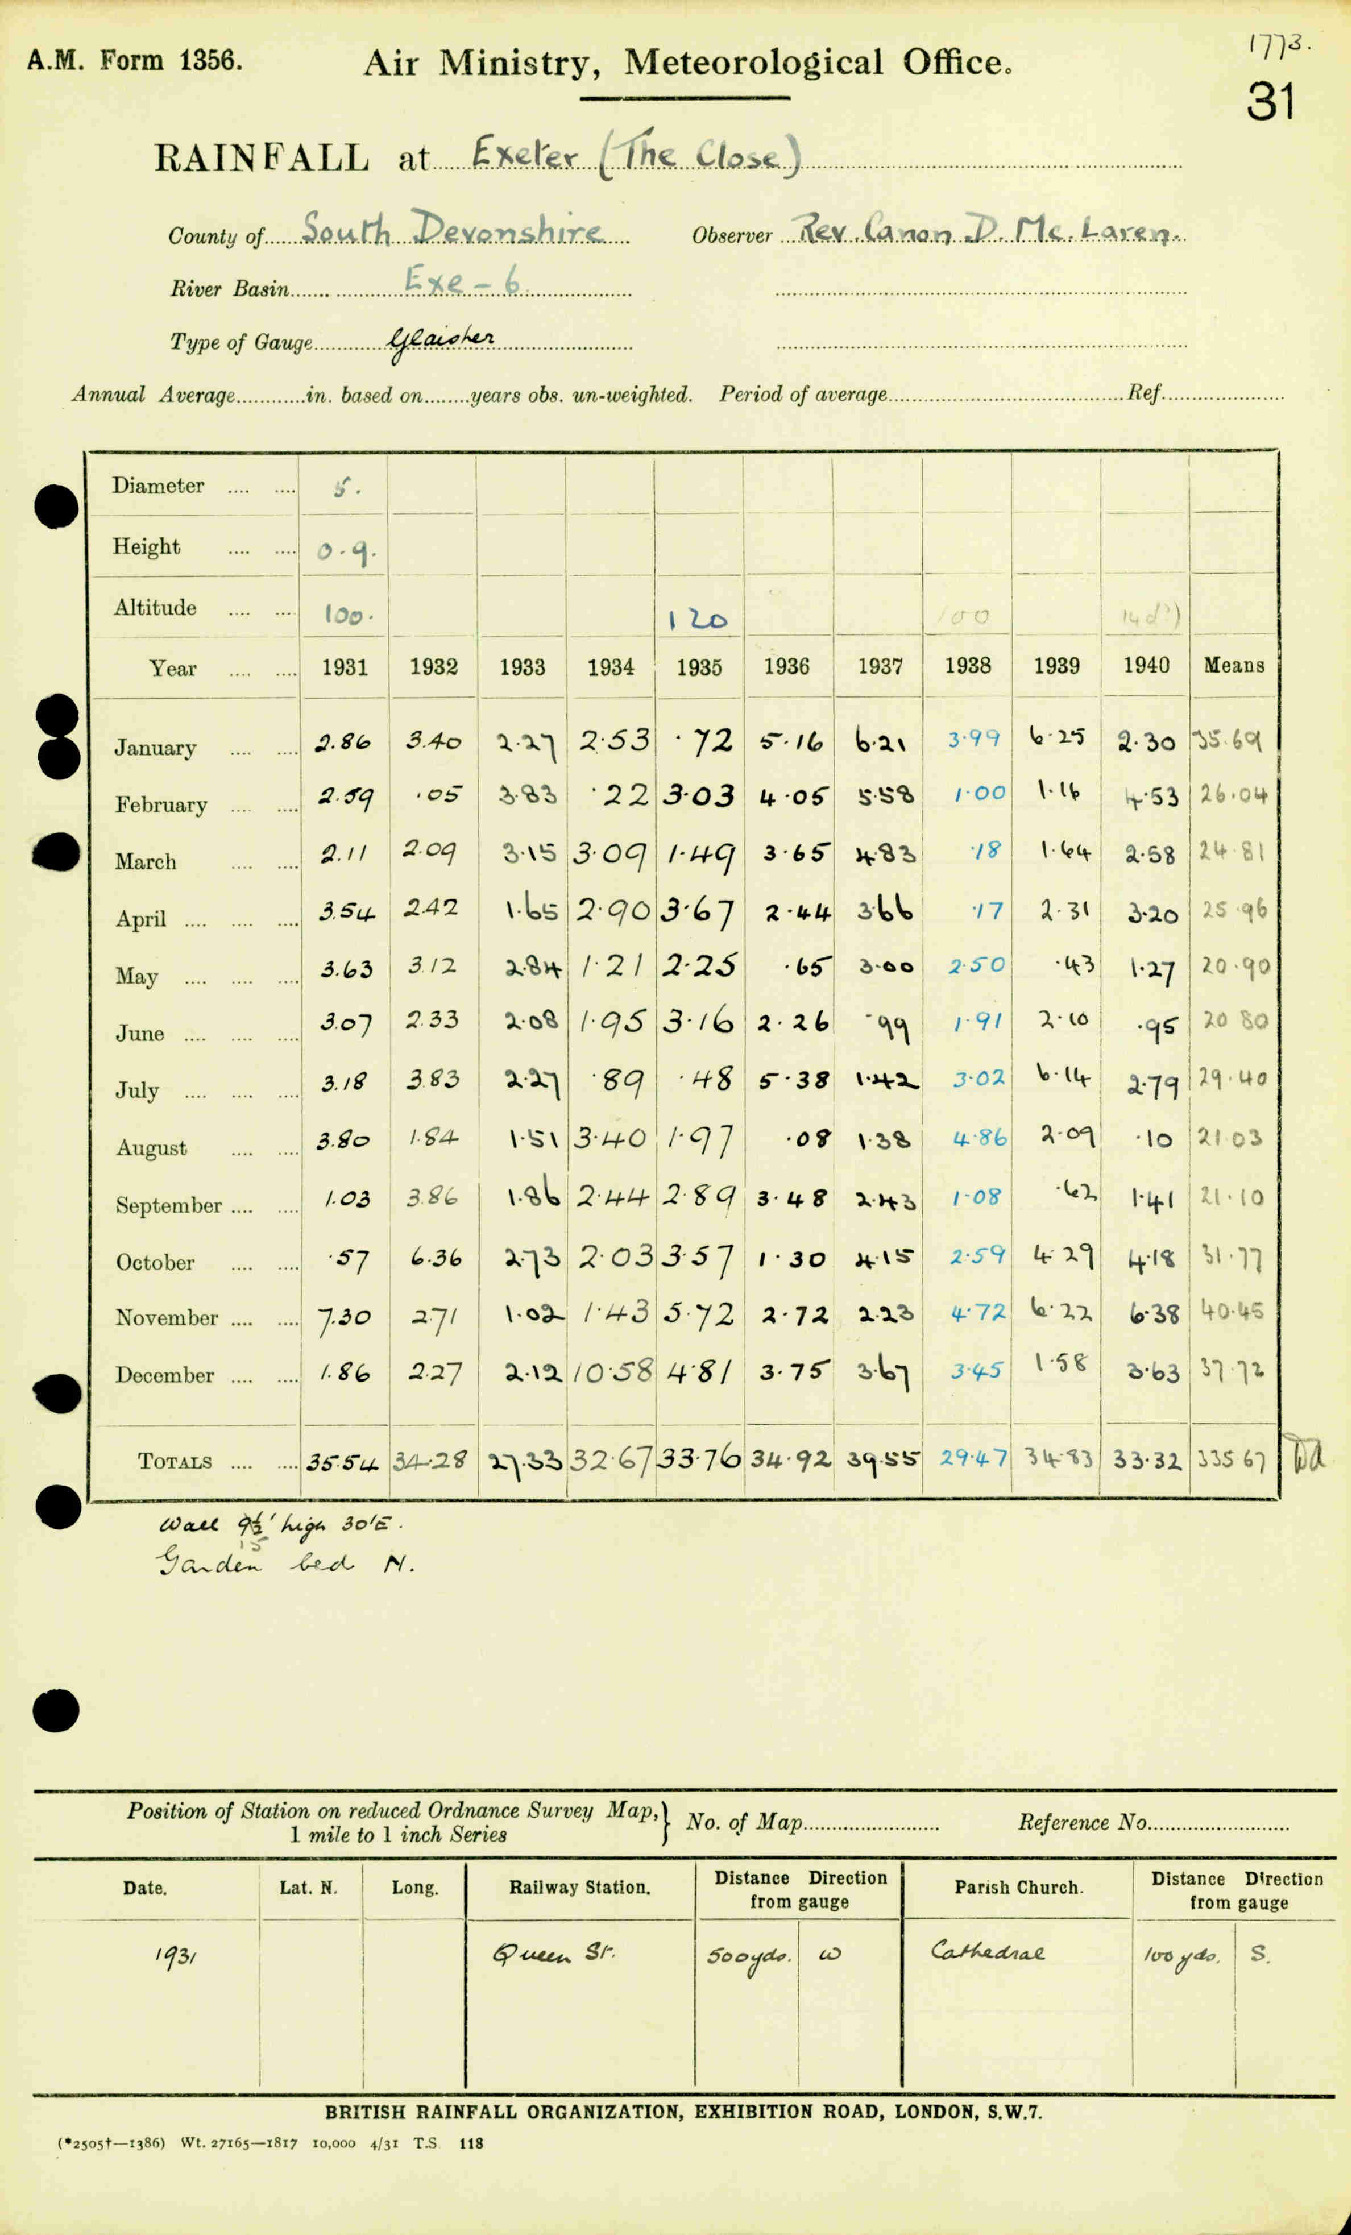 A.M. Form 1356.
Air Ministry, Meteorological Office.
1773.
31
RAINFALL at Exeter (The Close)
County of South Devonshire Observer Rev. Canon D. Mc. Laren.
River Basin Exe - 6
Type of Gauge Glaisher
Annual Average............in. based on........years obs. un-weighted. Period of average........Ref........
Diameter .... .... 5.
Height .... .... 0.9.
Altitude .... .... 100. 120 100
Year .... .... 1931 1932 1933 1934 1935 1936 1937 1938 1939 1940 Means
January .... .... 2.86 3.40 2.27 2.53 .72 5.16 6.21 3.99 6.25 2.30 35.69
February .... .... 2.59 .05 3.83 .22 3.03 4.05 5.58 1.00 1.16 4.53 26.04
March .... .... 2.11 2.09 3.15 3.09 1.49 3.65 4.83 .18 1.64 2.58 24.81
April .... .... .... 3.54 2.42 1.65 2.90 3.67 2.44 3.66 .17 2.31 3.20 25.96
May .... .... .... 3.63 3.12 2.84 1.21 2.25 .65 3.00 2.50 .43 1.27 20.90
June .... .... .... 3.07 2.33 2.08 1.95 3.16 2.26 .99 1.91 2.10 .95 20 80
July .... .... .... 3.18 3.83 2.27 .89 .48 5.38 1.42 3.02 6.14 2.79 29.40
August .... .... 3.80 1.84 1.51 3.40 1.97 .08 1.38 4.86 2.09 .10 21.03
September .... .... 1.03 3.86 1.86 2.44 2.89 3.48 2.43 1.08 .62 1.41 21.10
October .... .... .57 6.36 2.73 2.03 3.57 1.30 4.15 2.59 4.29 4.18 31.77
November .... .... 7.30 2.71 1.02 1.43 5.72 2.72 2.23 4.72 6.22 6.38 40.45
December .... .... 1.86 2.27 2.12 10.58 4.81 3.75 3.67 3.45 1.58 3.63 37.72
TOTALS .... .... 35.54 34.28 27.33 32.67 33.76 34.92 39.55 29.47 34.83 33.32 335 67
Wall 9½' high 30'E.
15
Garden bed N.
Position of Station on reduced Ordnance Survey Map,} No. of Map........ Reference No........
1 mile to 1 inch Series
Date. Lat. N. Long. Railway Station. Distance Direction from gauge Parish Church. Distance Direction from gauge
1931 Queen St. 500yds. W Cathedral 100 yds. S.
BRITISH RAINFALL ORGANIZATION, EXHIBITION ROAD, LONDON, S.W.7.
(*2505†—1386) Wt. 27165—1817 10,000 4/31 T.S. 118